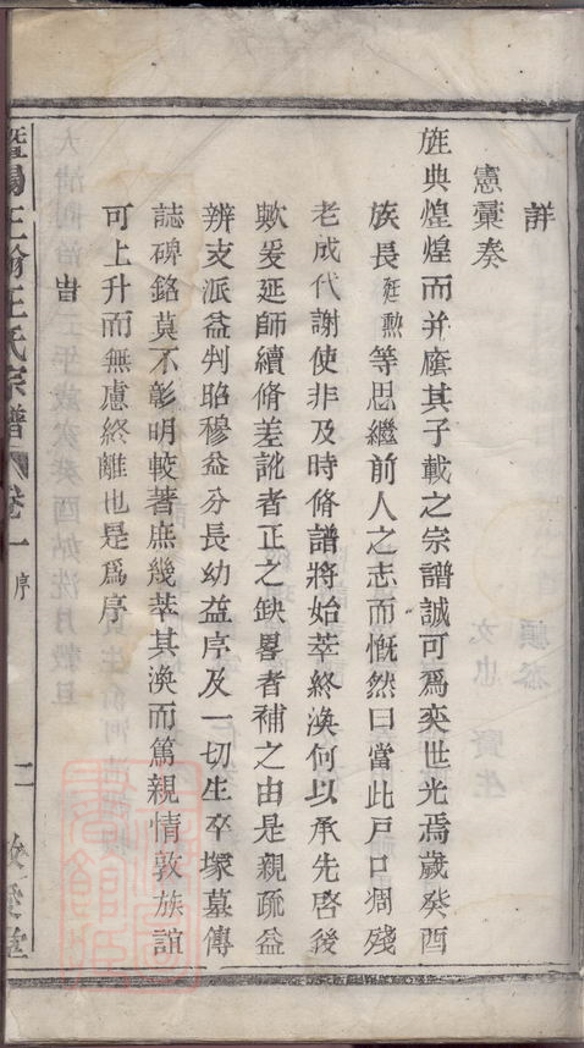 詳
憲彙奏
旌典煌煌而并廕其子載之宗譜誠可爲奕世光焉歲癸酉
族長廷勲等思繼前人之志而慨然曰當此戸口凋殘
老成代謝使非及時脩譜將始萃終渙何以承先啓後
歟爰延師續脩差訛者正之缺畧者補之由是親疏益
辨支派益判昭穆益分長幼益序及一切生卒塚墓傳
誌碑銘莫不彰明較著庶幾萃其渙而篤親情敦族誼
可上升而無慮終離也是爲序
旹
暨陽王氏宗譜 卷一 序 二